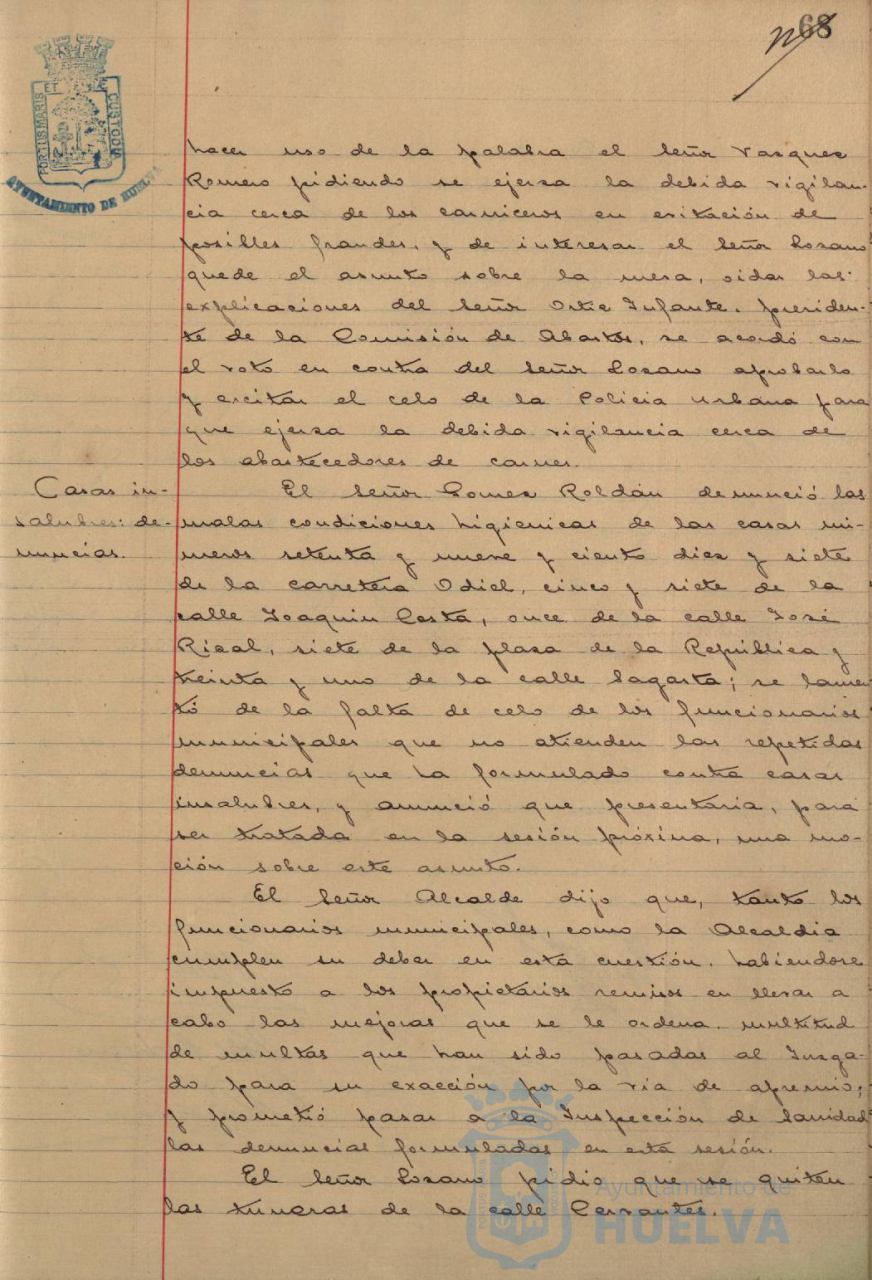 68
PORTUS MARIS ET TERRAE CUSTODIA
AYUNTAMIENTO DE HUELVA
hacer uso de la palabra el Señor Vazquez
Romero pidiendo se ejersa la debida vigilan-
cia cerca de los carniceros en evitación de
posibles fraudes, y de interesar el Señor Lozano
quede el asunto sobre la mesa, oidas las
explicaciones del Señor Ortiz Infante, presiden-
te de la Comisión de Abastos, se acordó con
el voto en contra del Señor Lozano aprobarlo
y excitar el celo de la Policia urbana para
que ejersa la debida vigilancia cerca de
los abastecedores de carnes.
Casas in-
salubres: de-
nuncias.
El Señor Gomez Roldán denunció las
malas condiciones higienicas de las casas nú-
meros setenta y nueve y ciento diez y siete
de la carretera Odiel, cinco y siete de la
calle Joaquin Costa, once de la calle José
Rizal, siete de la plaza de la República y
treinta y uno de la calle Sagasta; se lamen
tó de la falta de celo de los funcionarios
municipales que no atienden las repetidas
denuncias que ha formulado contra casas
insalubres, y anunció que presentaria, para
ser tratada en la sesión próxima, una mo-
ción sobre este asunto.
El Señor Alcalde dijo que, tanto los
funcionarios municipales, como la Alcaldia
cumplen su deber en esta cuestión, habiendose
impuesto a los propietarios remisos en llevar a
cabo las mejoras que se le ordena, multitud
de multas que han sido pasadas al Juzga-
do para su exacción por la via de apremio;
y prometió pasar a la Inspección de Sanidad
las denuncias formuladas en esta sesión.
El Señor Lozano pidio que se quiten
las tuneras de la calle Cervantes.
Ayuntamiento de
HUELVA